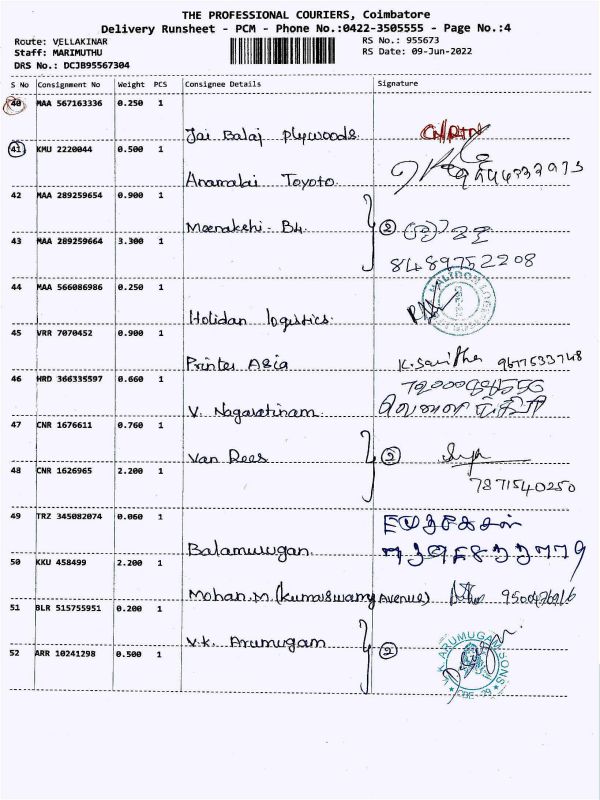 THE PROFESSIONAL COURIERS, Coimbatore
Delivery Runsheet - PCM - Phone No.:0422-3505555 - Page No.:4
Route: VELLAKINAR
Staff: MARIMUTHU
DRS No.: DCJB95567304
RS No.: 955673
RS Date: 09-Jun-2022
S No Consignment No Weight PCS Consignee Details Signature
40 MAA 567163336 0.250 1
Jai Balaj Plywoods.
41 KMU 2220044 0.500 1
Anamalai Toyoto.
42 MAA 289259654 0.900 1
Meenakshi - B4. 2
43 MAA 289259664 3.300 1
8489752208
44 MAA 566086986 0.250 1
Holidan logistics.
45 VRR 7070452 0.900 1
Printer Asia K. Savitha 9677533748
46 HRD 366335597 0.660 1
V. Nagaratinam.
47 CNR 1676611 0.760 1
Van Rees 2
48 CNR 1626965 2.200 1
7871540250
49 TRZ 345082074 0.060 1
Balamurugan.
50 KKU 458499 2.200 1
Mohan.M. (kumaswamy Avenue)
51 BLR 515755951 0.200 1
V.K. Arumugam 2
52 ARR 10241298 0.500 1
K.K. ARUMUGAM SONS